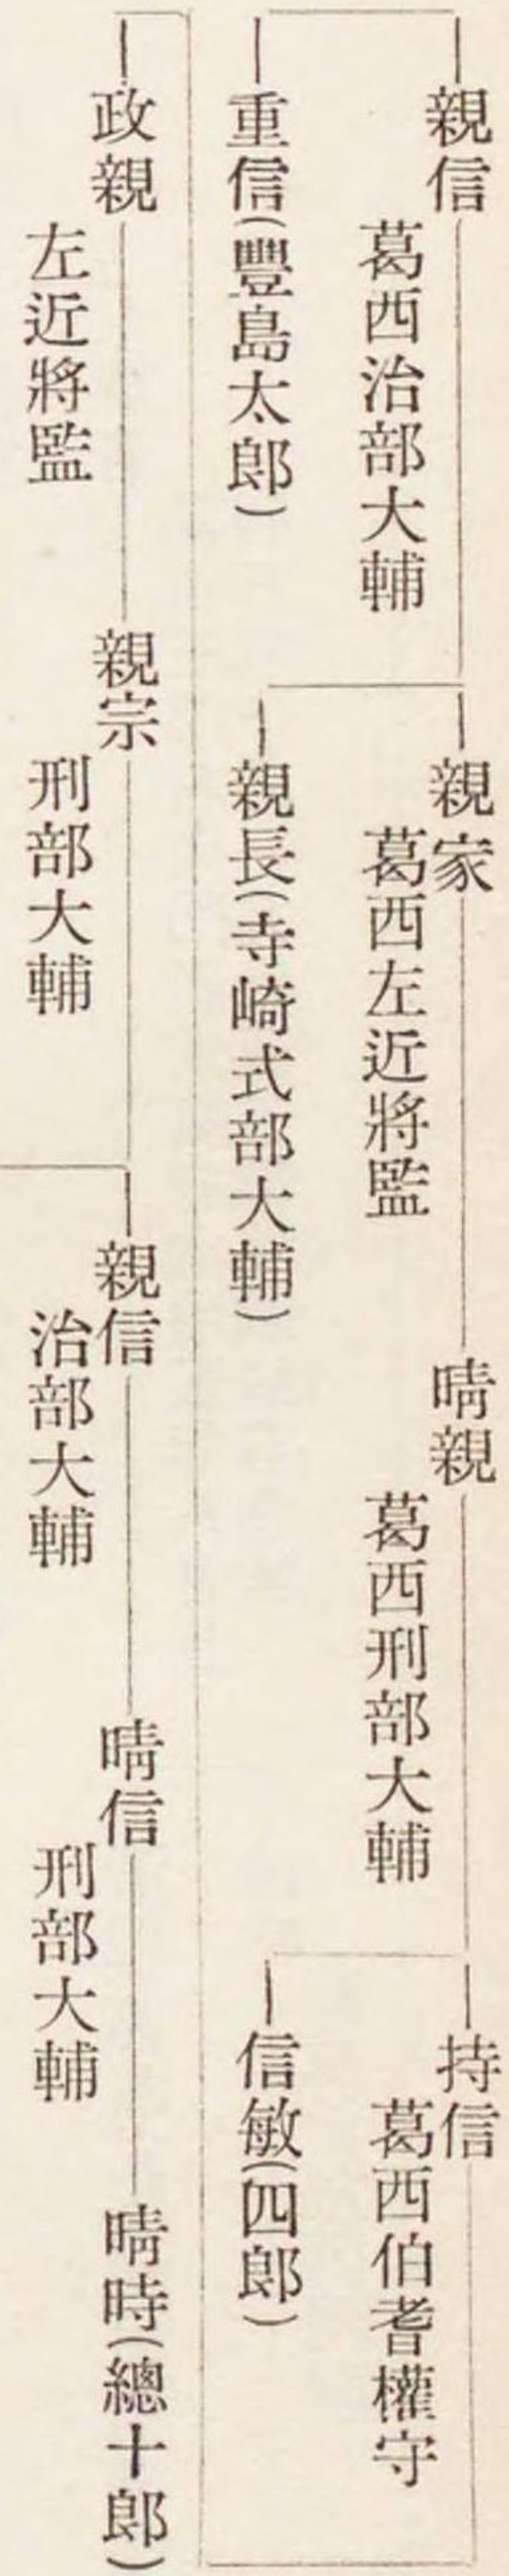 親信
葛西治部大輔
親家
葛西左近將監
晴親
葛西刑部大輔
持信
葛西伯耆權守
重信(豐島太郎)
親長(寺崎式部大輔)
信敏(四郎)
政親
左近將監
親宗
刑部大輔
親信
治部大輔
晴信
刑部大輔
晴時(總十郎)